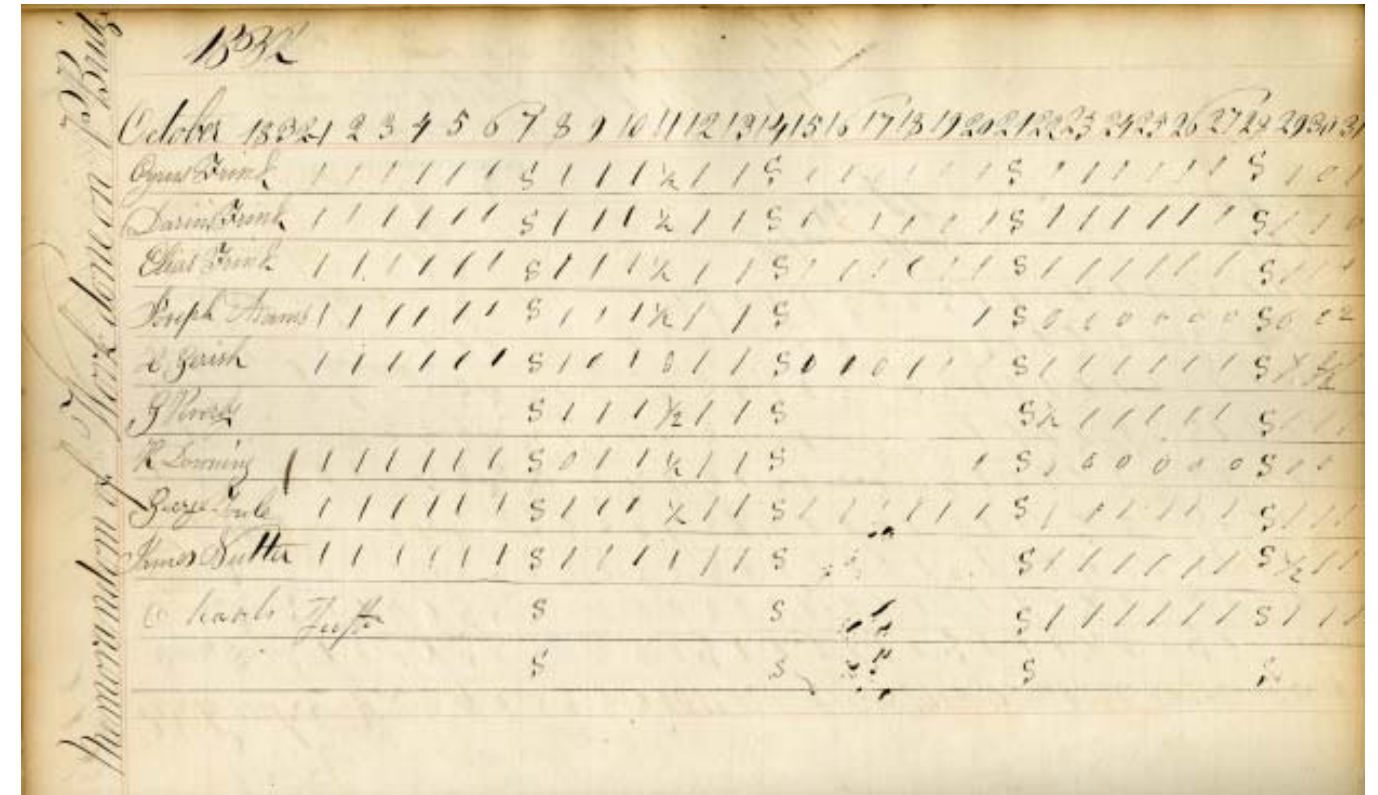 Memorandom of Work done on Brig
1832
October 1832 1 2 3 4 5 6 7 8 9 10 11 12 13 14 15 16 17 18 19 20 21 22 23 24 25 26 27 28 29 30 31
Cyrus Frink 1 1 1 1 1 1 S 1 1 1 1/2 1 1 S 1 1 1 1 1 1 S 1 1 1 1 1 1 S 1 0 1
Darius Frink 1 1 1 1 1 1 S 1 1 1 1/2 1 1 S 1 1 1 1 1 1 S 1 1 1 1 1 1 S 1 1 0
Elias Frink 1 1 1 1 1 1 S 1 1 1 1/2 1 1 S 1 1 1 1 1 1 S 1 1 1 1 1 1 S 1 1 1
Joseph Adams 1 1 1 1 1 1 S 1 1 1 1/2 1 1 S 1 S 0 1 0 0 0 0 S 0
1 1 1 1 1 1 S 1 0 1 0 1 1 S 0 1 0 1 1 S 1 1 1 1 1 1 S
G S 1 1 1 1/2 1 1 S S 1/2 1 1 1 1 1 S 1 1 1
Downing 1 1 1 1 1 1 S 0 1 1 1/2 1 1 S 1 S 1 0 0 0 0 0 S
George 1 1 1 1 1 1 S 1 1 1 1/2 1 1 S 1 1 1 1 1 1 S 1 1 1 1 1 1 S 1 1 1
James Nutter 1 1 1 1 1 1 S 1 1 1 1 1 1 S S 1 1 1 1 1 1 S 1/2 1 1
Charls S S S 1 1 1 1 1 1 S 1 1 1
S S S S